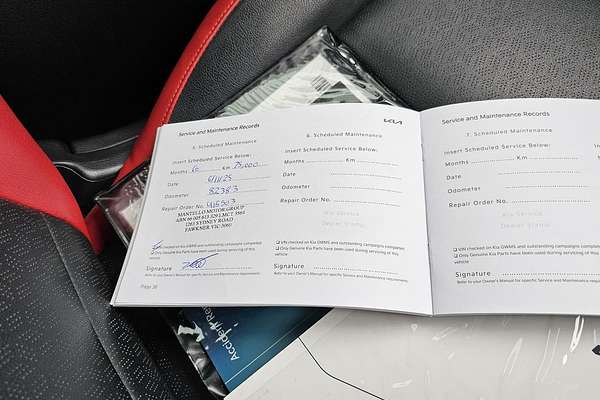 Service and Maintenance Records
5. Scheduled Maintenance
Insert Scheduled Service Below:
Months Km 75,000
Date
Odometer 82383
Repair Order No.
MANTELLO MOTOR GROUP
1283 SYDNEY ROAD
FAWKNER VIC 3060
VIN checked on Kia GWMS and outstanding campaigns completed
Only Genuine Kia Parts have been used during servicing of this vehicle
Signature
Refer to your Owner's Manual for specific Service and Maintenance requirements.
Page 38
KIA
6. Scheduled Maintenance
Insert Scheduled Service Below:
Months Km
Date
Odometer
Repair Order No.
Kia Service
Dealer Stamp
VIN checked on Kia GWMS and outstanding campaigns completed
Only Genuine Kia Parts have been used during servicing of this
vehicle
Signature
Refer to your Owner's Manual for specific Service and Maintenance requirements.
Service and Maintenance Records
7. Scheduled Maintenance
Insert Scheduled Service Below:
Months Km
Date
Odometer
Repair Order No.
Kia Service
Dealer Stamp
VIN checked on Kia GWMS and outstanding campaigns completed
Only Genuine Kia Parts have been used during servicing of this
vehicle
Signature
Refer to your Owner's Manual for specific Service and Maintenance requirements.